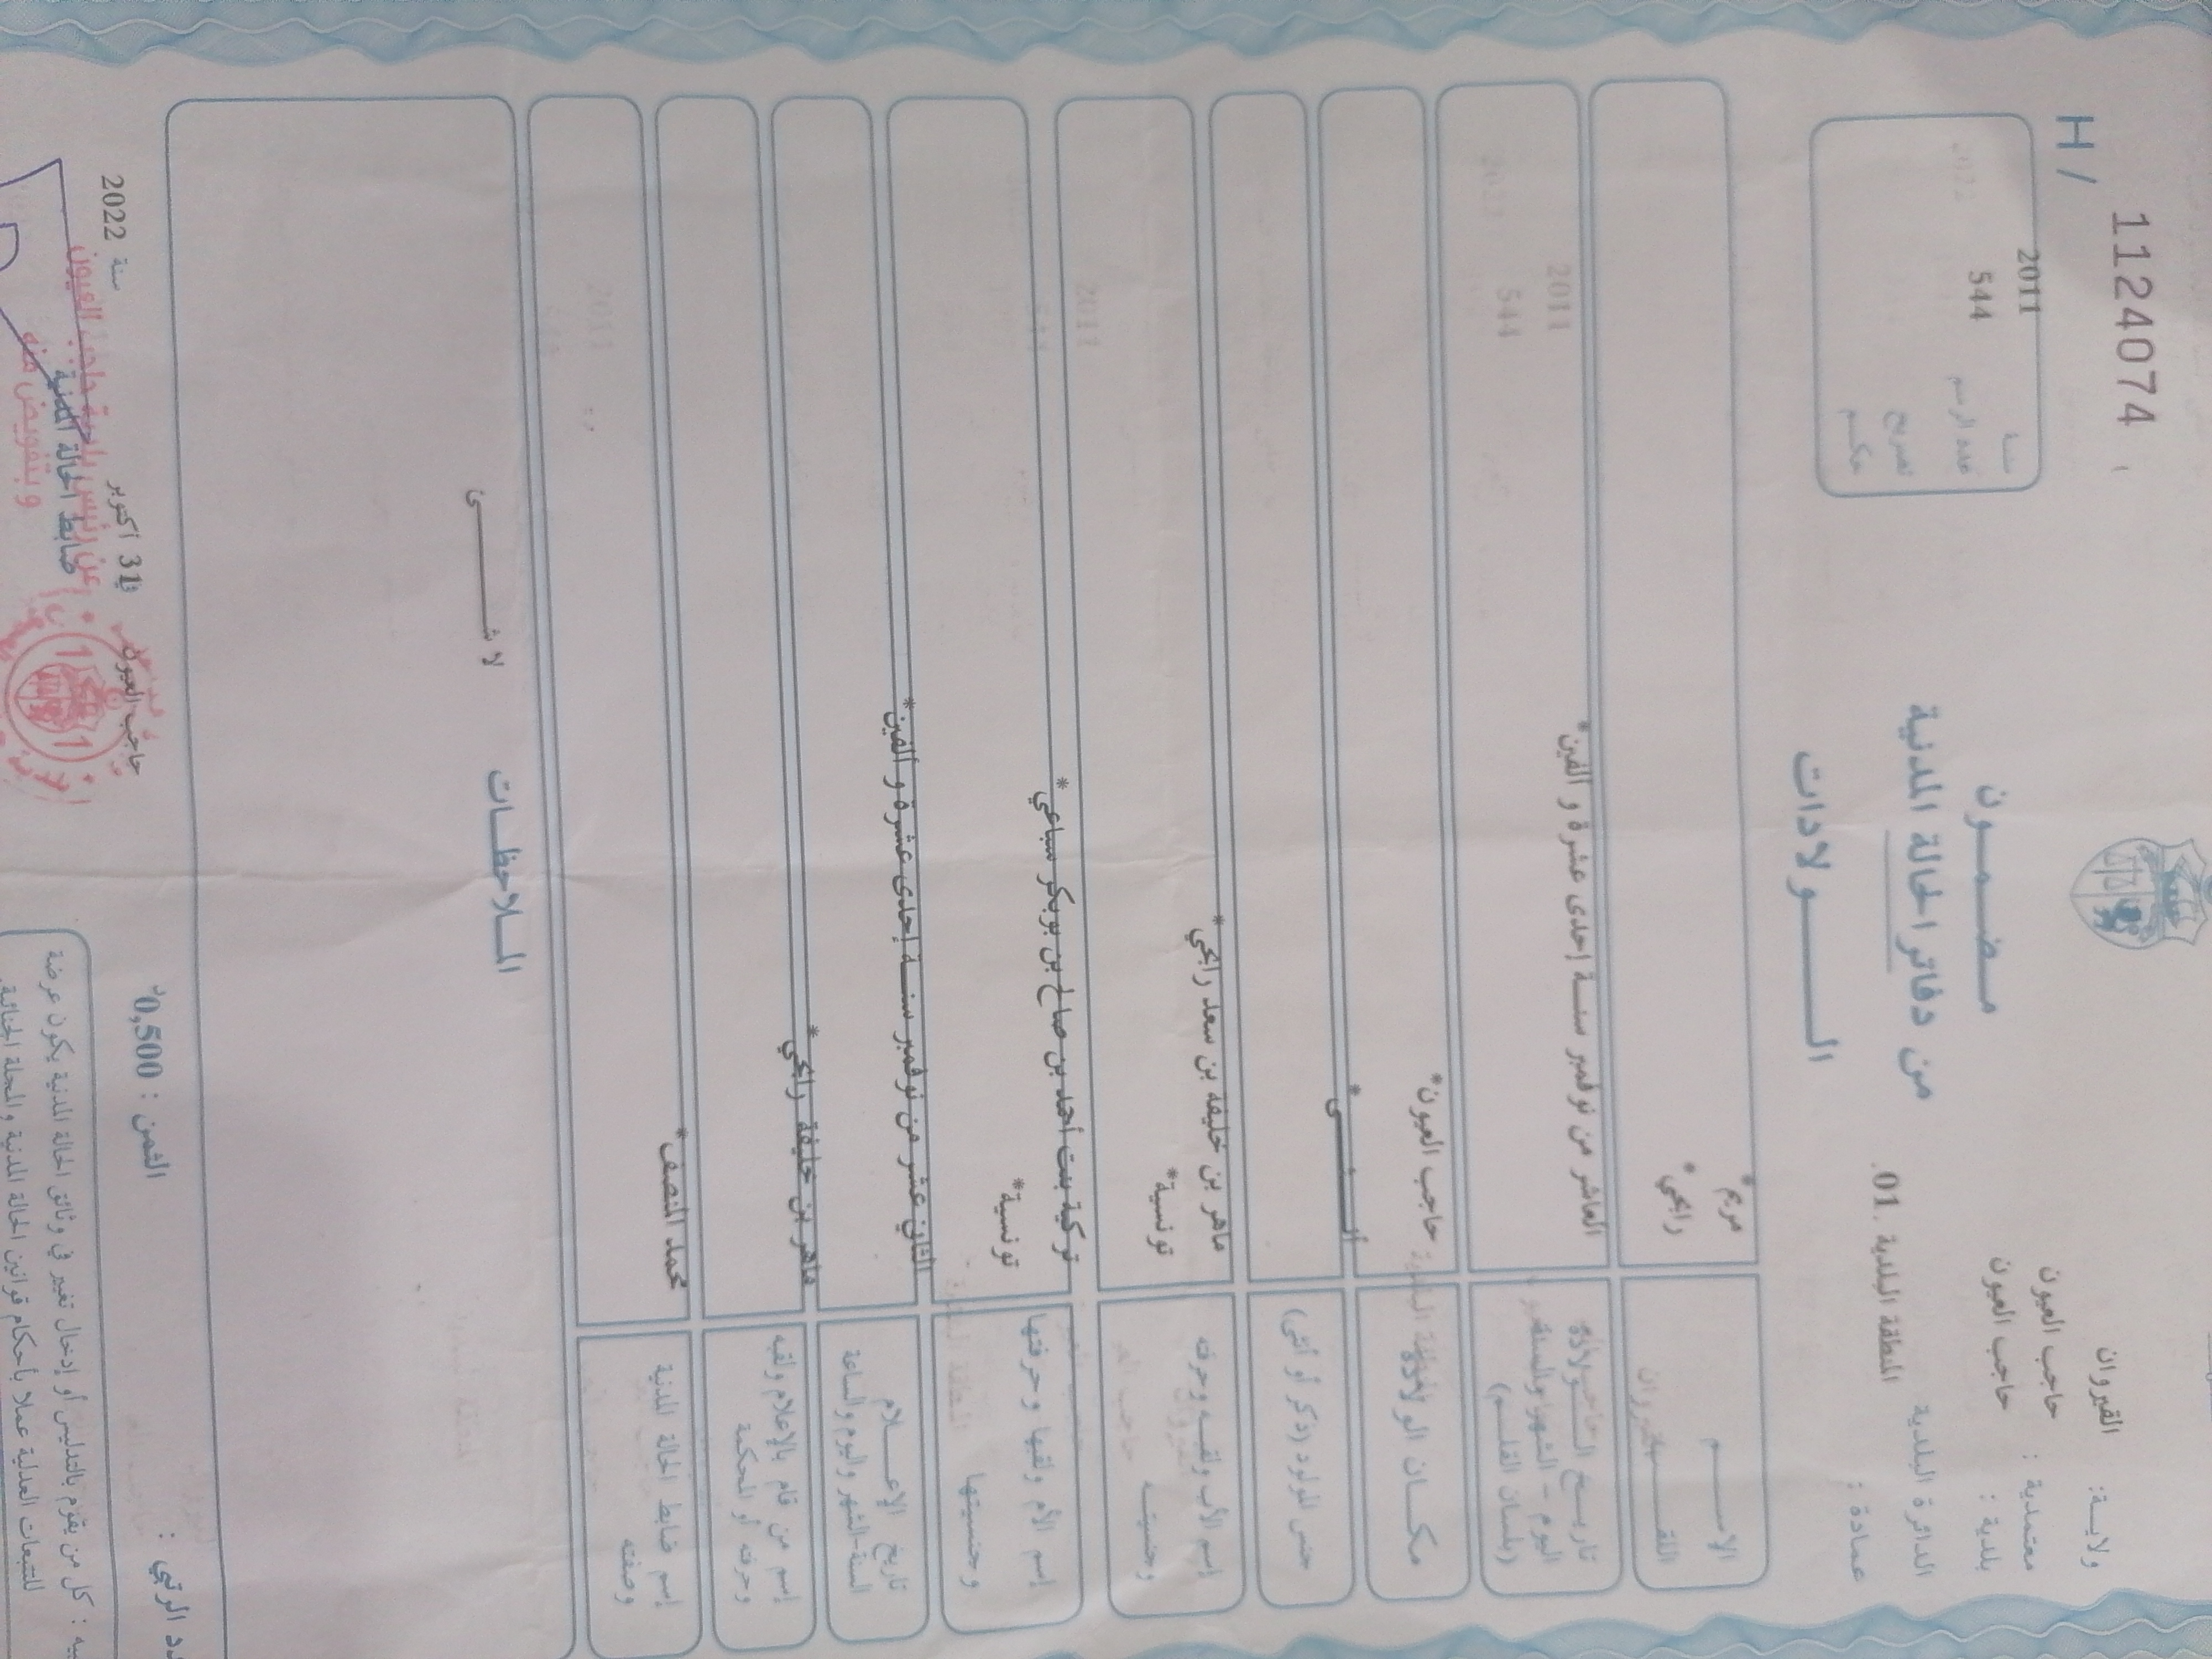 H / 1124074
ولايـة: القيروان
معتمدية : حاجب العيون
بلدية : حاجب العيون
الدائرة البلدية المنطقة البلدية .01
عمادة :
مـضـمـــون
من دفاتر الحالة المدنية
الـــــولادات
سنـة 2011
عدد الرسم 544
تصريح
حكـم
الإســـم مريم*
اللقـــب رابحي*
تاريــخ الــولادة
اليوم - الشهر والسنة
(بلسان القلــم)
العاشر من نوفمبر سنــة إحدى عشرة و ألفين*
مكــان الولادة حاجب العيون*
جنس المولود (ذكر أو أنثى) أنـــثـــى*
إسم الأب ولقبـه وحرفته ماهر بن خليفه بن سعد رابحي*
وجنسيتــه تونسية*
إسم الأم ولقبها وحرفتها تركية بنت أحمد بن صالح بن بوبكر سباعي*
وجنسيتها تونسية*
تاريخ الإعــــلام
السنة-الشهر واليوم والساعة
الثاني عشر من نوفمبر سنــة إحدى عشرة و ألفين*
إسم من قام بالإعلام ولقبه
وحرفته أو المحكمة
ماهر بن خليفة رابحي*
إسم ضابط الحالة المدنية
وصفته
محمد المنصف*
المــلاحظــات
لا شـــــــئ
الثمن : 0,500د
حاجب العيون في 31 أكتوبر سنة 2022
ضابط الحالة المدنية
عن رئيس بلدية حاجب العيون
و بتفويض منه
كل من يقوم بالتدليس أو إدخال تغيير في وثائق الحالة المدنية يكون عرضة
للتتبعات العدلية عملا بأحكام قوانين الحالة المدنية والمجلة الجنائية.